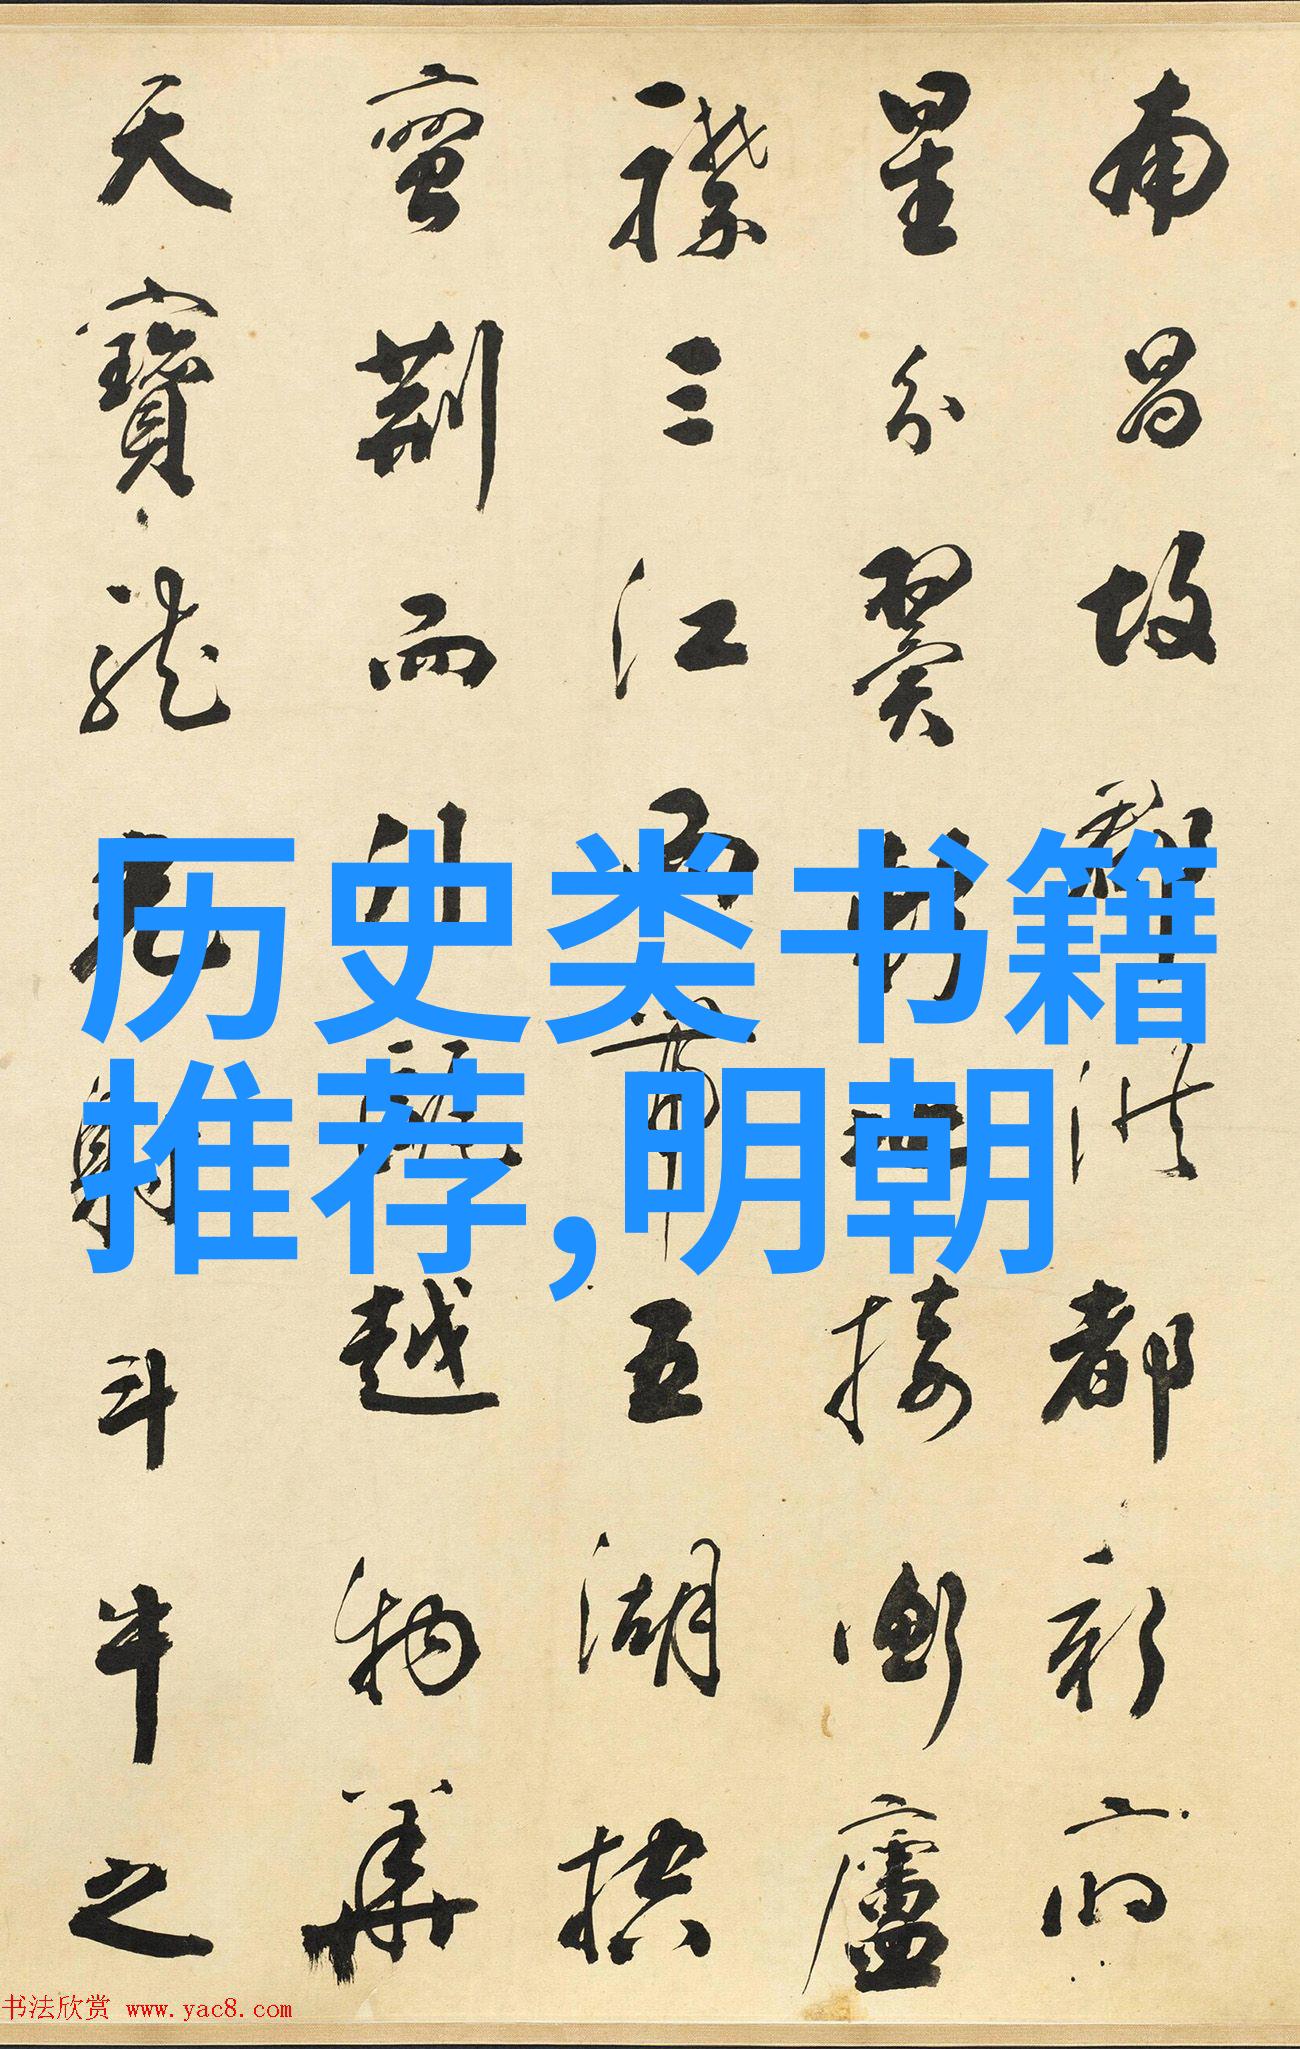 南昌故郡洪都新府
星分翼接衡廬
襟三江而帶五湖控
蠻荆而引甌越物華
天寶龍光射斗牛之
历史类书籍
推荐,明朝
书法欣赏 www.yac8.com